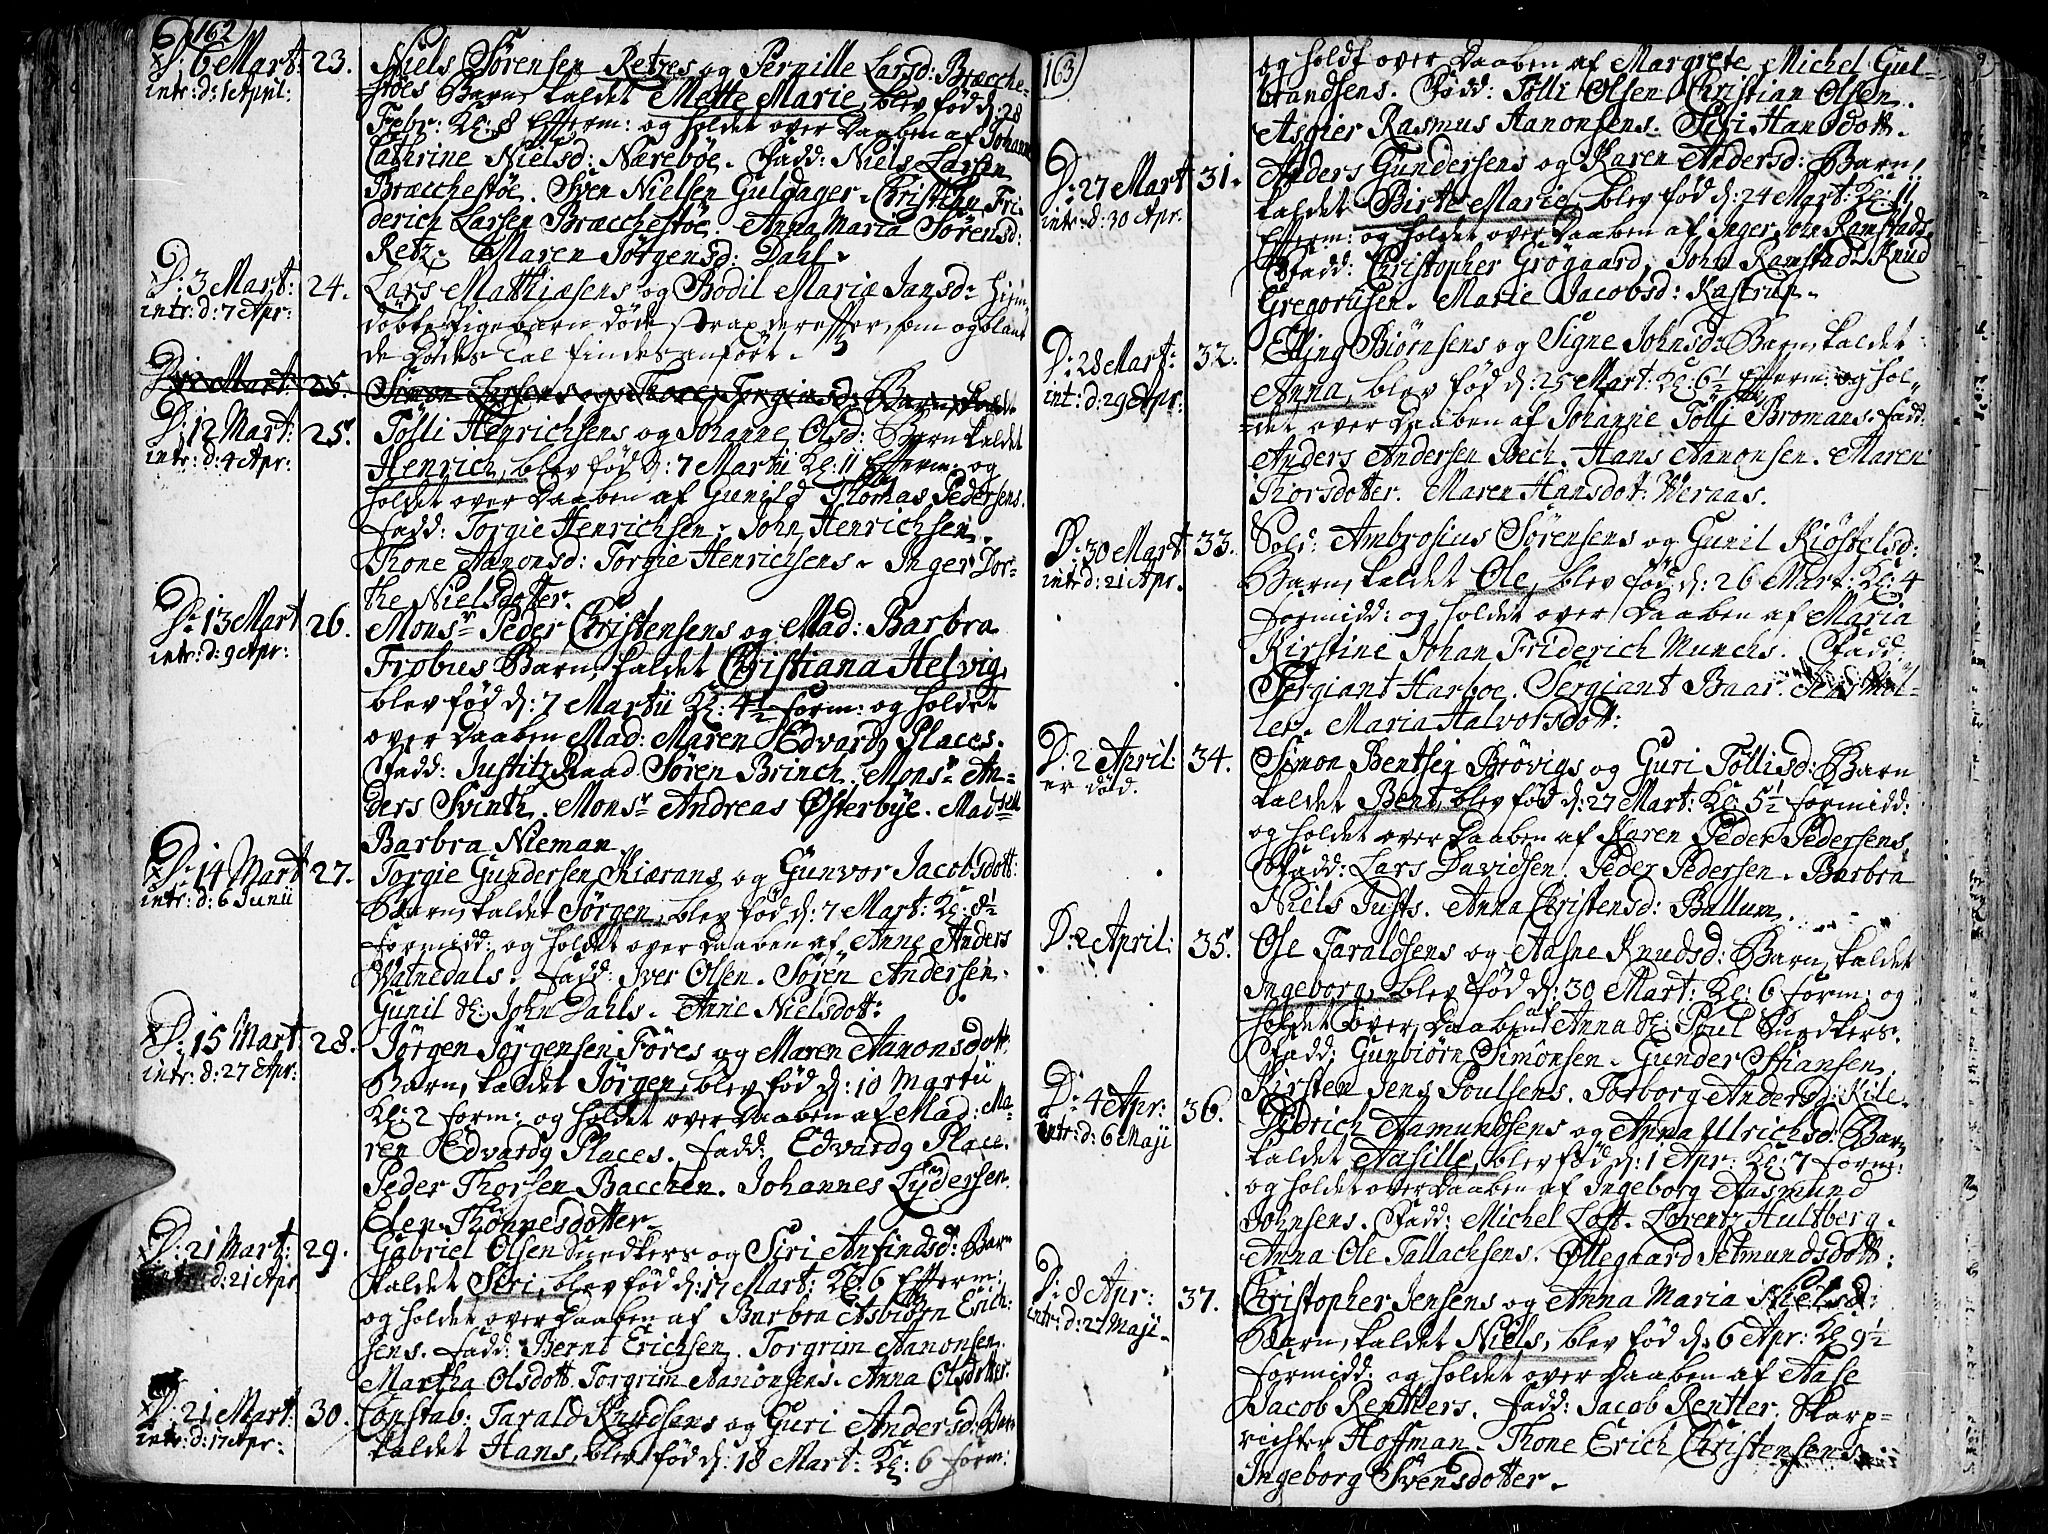 162
D: 6 Mart: 23. Niels Sörensen Retzes og Pernille Larsd: Bracche-
intr: d: 1 April: stöes Barn, kaldet Mette Marie, blev född d: 28
Febr: Kl: 8 Efterm: og holdet over Daaben af Johanne
Cathrine Nielsd: Næreböe. Fadd: Niels Larsen
Bracchestöe. Sven Nielsen Guldager. Christen Fri-
derich Larsen Bracchestöe. Anna Maria Sörensd:
Retz. Maren Jörgensd: Dahl.
D: 3 Mart: 24. Lars Mathiæsens og Bodil Marie Jansd:
intr: d: 7 Apr: döbte Pigebarn döde strax derefter, som og blant
de Dödes Tal findes anfört.
Mart: 25. Simon og Thore Torgiusd: Barn
D: 12 Mart: 25. Tölli Henrichsens og Johanne Olsd: Barn kaldet
intr: d: 4 Apr: Henrich, blev föd d: 7 Martii Kl: 11 Efterm: og
holdet over Daaben af Gunild Thomas Pedersens.
Fadd: Torgie Henrichsen. John Henrichsen.
Thone Aanonsd: Torgie Henrichsens. Inger Dor-
the Nielsdotter.
D: 13 Mart 26. Monsr Peder Christensens og Mad: Barbra
intr: d: 9 Apr: Frobus Barn, kaldet Christiana Helvig,
blev föd d: 7 Martii Kl: 4½ form: og holdet
over Daaben Mad: Maren Edvardg Places.
Fadd: JustitzRaad Sören Brinch. Monsr An-
ders Svinth. Monsr Andreas Østerbye. Madsell
Barbra Nieman.
D: 14 Mart 27. Torgie Gundersen Kiærans og Gunvor Jacobsdott:
intr: d: 6 Junii Barn, kaldet Jörgen, blev föd d: 7 Mart: Kl: 8½
formidd: og holdet over Daaben af Anne Anders
Vatnedals. Fadd: Iver Olsen. Sören Andersen.
Gunil Sl: John Dahls. Anne Nielsdott:
D: 15 Mart 28. Jörgen Jörgensen Föres og Maren Aanonsdott:
intr: d: 27 Apr: Barn, kaldet Jörgen, blev föd d: 10 Martii
Kl: 2 form: og holdet over Daaben af Mad: Ma-
ren Edvardg Places. Fadd: Edvardg Place.
Peder Thorsen Bacchen. Johannes Tydersen.
Elen Thönnesdotter.
D: 21 Mart: 29. Gabriel Olsen Snedkers og Siri Anfindsd: Barn
intr: d: 21 Apr kaldet Siri, blev föd d: 17 Mart: Kl: 6 Efterm:
og holdet over Daaben af Barbra Asbiörn Erich-
sens. Fadd: Bernt Erichsen. Torgrim Aanonsen.
Martha Olsdott. Torgrim Aanonsens. Anna Olsdotter.
D: 21 Mart 30. Constab: Tarald Knudsens og Guri Andersd: Barn
intr: d: 17 Apr: kaldet Hans, blev föd d: 18 Mart: Kl: 6 form:
163
og holdt over Daaben af Margrete Michel Gul-
brandsens. Fadd: Tölli Olsen. Christian Olsen.
Asgier Rasmus Aanonsens. Siri Hansdott.
D: 27 Mart 31. Anders Gundersens og Karen Andersd: Barn,
intr: d: 30 Apr. kaldet Birte Marie, blev föd d: 24 Mart: Kl: 11
Efterm: og holdet over Daaben af Inger Jols Ramstads.
Fadd: Christopher Grögaard. John Ramstad. Knud
Gregoriusen. Marie Jacobsd: Kastrup.
D: 28 Mart: 32. Elling Biörnsens og Signe Johnsd: Barn, kaldet
int: d: 29 Apr: Anna, blev föd d: 25 Mart: Kl: 6½ Efterm: og hol-
det over Daaben af Johanne Tölli Bromans. Fadd:
Anders Andersen Bech. Hans Aanonsen. Maren
Thorsdotter. Maren Hansdot: Weraas.
D: 30 Mart 33. Sold: Ambrosius Sörensens og Gunil Kiöstelsd:
intr: d: 21 Apr. Barn, kaldet Ole, blev föd d: 26 Mart: Kl: 4
formidd: og holdet over Daaben af Maria
Kirstine Johan Friderich Munchs. Fadd:
Sergiant Harboe. Sergiant Baar. Jens Möl-
ler. Maria Halvorsdott:
D: 2 April: 34. Simon Bentsen Brövigs og Guri Töllisd: Barn
er död. kaldet Bent, blev föd d: 27 Mart: Kl: 5½ formidd:
og holdet over Daaben af Karen Peder Pedersens.
Fadd: Lars Davidsen. Peder Pedersen. Barbra
Niels Justs. Anna Christensd: Ballum.
D: 2 April: 35. Ole Taraldsens og Aasne Knudsd: Barn, kaldet
Ingeborg, blev föd d: 30 Mart: Kl: 6 form: og
holdet over Daaben af Anna Sl: Poul Snedkers.
Fadd: Gunbiörn Simonsen. Gunder Stiansen.
Kirsten Jens Poulsens. Torborg Andersd: Kile.
D: 4 Apr: 36. Didrich Aamundsens og Anna Ulrichsd: Barn
intr: d: 6 Maji kaldet Aasille, blev föd d: 1 Apr: Kl: 7 form:
og holdet over Daaben af Ingeborg Aasmund
Johnsens. Fadd: Michel Loft. Lorentz Hultberg.
Anna Ole Tallachsens. Øllegaard Jetmundsdott:
D: 8 Apr: 37. Christopher Jensens og Anna Maria Nielsd:
intr: d: 27 Maji. Barn, kaldet Niels, blev föd d: 6 Apr: Kl: 9½
formidd: og holdet over Daaben af Aase
Jacob Rentlers. Fadd: Jacob Rentler. Skarp-
richter Hoffman. Thone Erich Christensens.
Ingeborg Svensdotter.